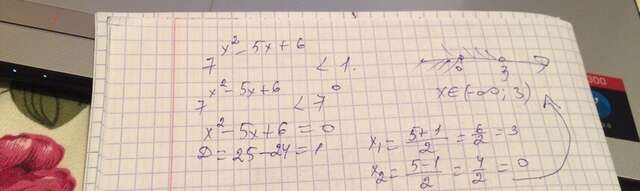 7^(x²-5x+6) < 1.
7^(x²-5x+6) < 7⁰
x²-5x+6=0
D=25-24=1
0 3
x∈(-∞; 3)
x₁=(5+1)/2=6/2=3
x₂=(5-1)/2=4/2=0
300